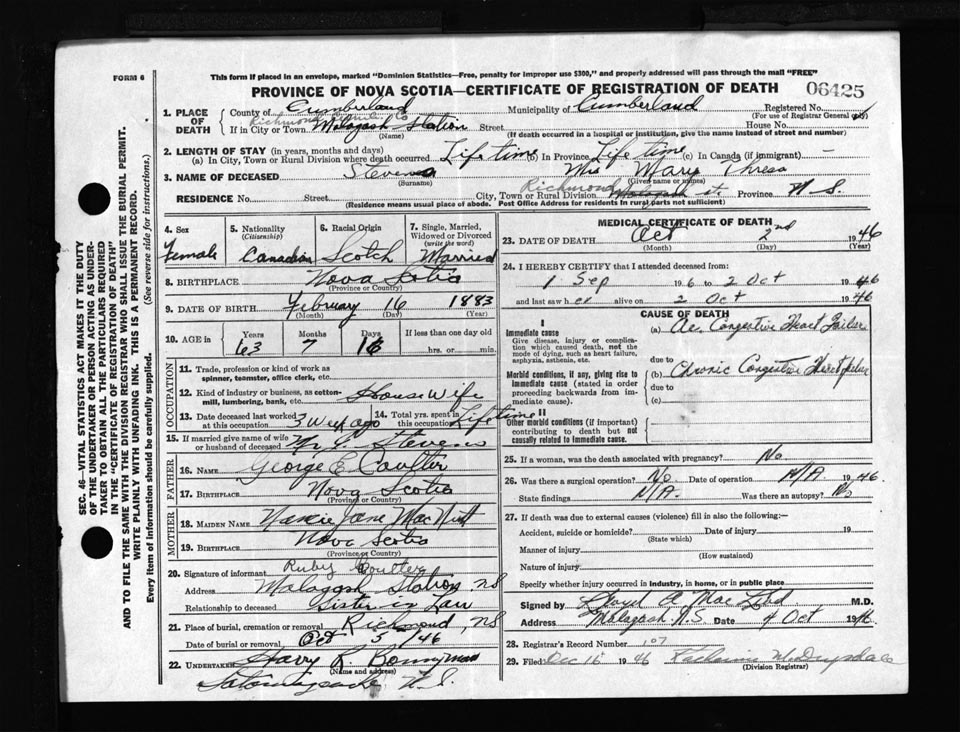 FORM 6
This form if placed in an envelope, marked "Dominion Statistics—Free, penalty for improper use $300," and properly addressed will pass through the mail "FREE"
PROVINCE OF NOVA SCOTIA—CERTIFICATE OF REGISTRATION OF DEATH
06425
1. PLACE OF DEATH
County of Cumberland Municipality of Cumberland Registered No.
(For use of Registrar General only)
Richmond
If in City or Town Malagash Station Street House No.
(Name) (If death occurred in a hospital or institution, give the name instead of street and number)
2. LENGTH OF STAY (in years, months and days)
(a) In City, Town or Rural Division where death occurred Lifetime (b) In Province Life time (c) In Canada (if immigrant) —
3. NAME OF DECEASED Stevens Mrs Mary Thresa
(Surname) (Given name or names)
RESIDENCE No. Street City, Town or Rural Division Richmond Malagash st. Province N S.
(Residence means usual place of abode. Post Office Address for residents in rural parts not sufficient)
4. Sex Female
5. Nationality (Citizenship) Canadian
6. Racial Origin Scotch
7. Single, Married, Widowed or Divorced (write the word) Married
8. BIRTHPLACE Nova Scotia
(Province or Country)
9. DATE OF BIRTH February 16 1883
(Month) (Day) (Year)
10. AGE in Years Months Days If less than one day old
63 7 16 hrs. or min.
OCCUPATION
11. Trade, profession or kind of work as spinner, teamster, office clerk, etc.
12. Kind of industry or business, as cotton-mill, lumbering, bank, etc. House Wife
13. Date deceased last worked at this occupation 3 Week ago
14. Total yrs. spent in this occupation Lifetime
15. If married give name of wife or husband of deceased Mr Stevens
FATHER
16. Name George E Coulter
17. Birthplace Nova Scotia
(Province or Country)
MOTHER
18. MAIDEN NAME Nancie Jane MacNutt
19. BIRTHPLACE Nova Scotia
(Province or Country)
20. Signature of informant Ruby Coulter
Address Malagash Station, NS
Relationship to deceased Sister in Law
21. Place of burial, cremation or removal Richmond, NS
Date of burial or removal Oct 5/46
22. UNDERTAKER Harry R. Bonnyman
(Name and address)
Tatamagouche N.S.
MEDICAL CERTIFICATE OF DEATH
23. DATE OF DEATH Oct 2nd 1946
(Month) (Day) (Year)
24. I HEREBY CERTIFY that I attended deceased from:
1 Sep 1946 to 2 Oct 1946
and last saw her alive on 2 Oct 1946
CAUSE OF DEATH
I
Immediate cause
Give disease, injury or complication which caused death, not the mode of dying, such as heart failure, asphyxia, asthenia, etc.
(a) Ac. Congestive Heart Failure
due to
Morbid conditions, if any, giving rise to immediate cause (stated in order proceeding backwards from immediate cause).
(b) Chronic Congestive Heart failure
due to
(c)
II
Other morbid conditions (if important) contributing to death but not causally related to immediate cause.
25. If a woman, was the death associated with pregnancy? No.
26. Was there a surgical operation? No. Date of operation N/A 1946.
State findings N/A. Was there an autopsy? No
27. If death was due to external causes (violence) fill in also the following:—
Accident, suicide or homicide? Date of injury 19
(State which)
Manner of injury
(How sustained)
Nature of injury
Specify whether injury occurred in industry, in home, or in public place
Signed by Lloyd A. M.D.
Address Malagash N.S. Date 4 Oct 1946
28. Registrar's Record Number 107
29. Filed Dec 16 1946
(Division Registrar)
SEC. 46—VITAL STATISTICS ACT MAKES IT THE DUTY
OF THE UNDERTAKER OR PERSON ACTING AS UNDER-
TAKER TO OBTAIN ALL THE PARTICULARS REQUIRED
IN THE "CERTIFICATE OF REGISTRATION OF DEATH"
AND TO FILE THE SAME WITH THE DIVISION REGISTRAR WHO SHALL ISSUE THE BURIAL PERMIT.
WRITE PLAINLY WITH UNFADING INK. THIS IS A PERMANENT RECORD.
Every item of information should be carefully supplied. (See reverse side for instructions.)